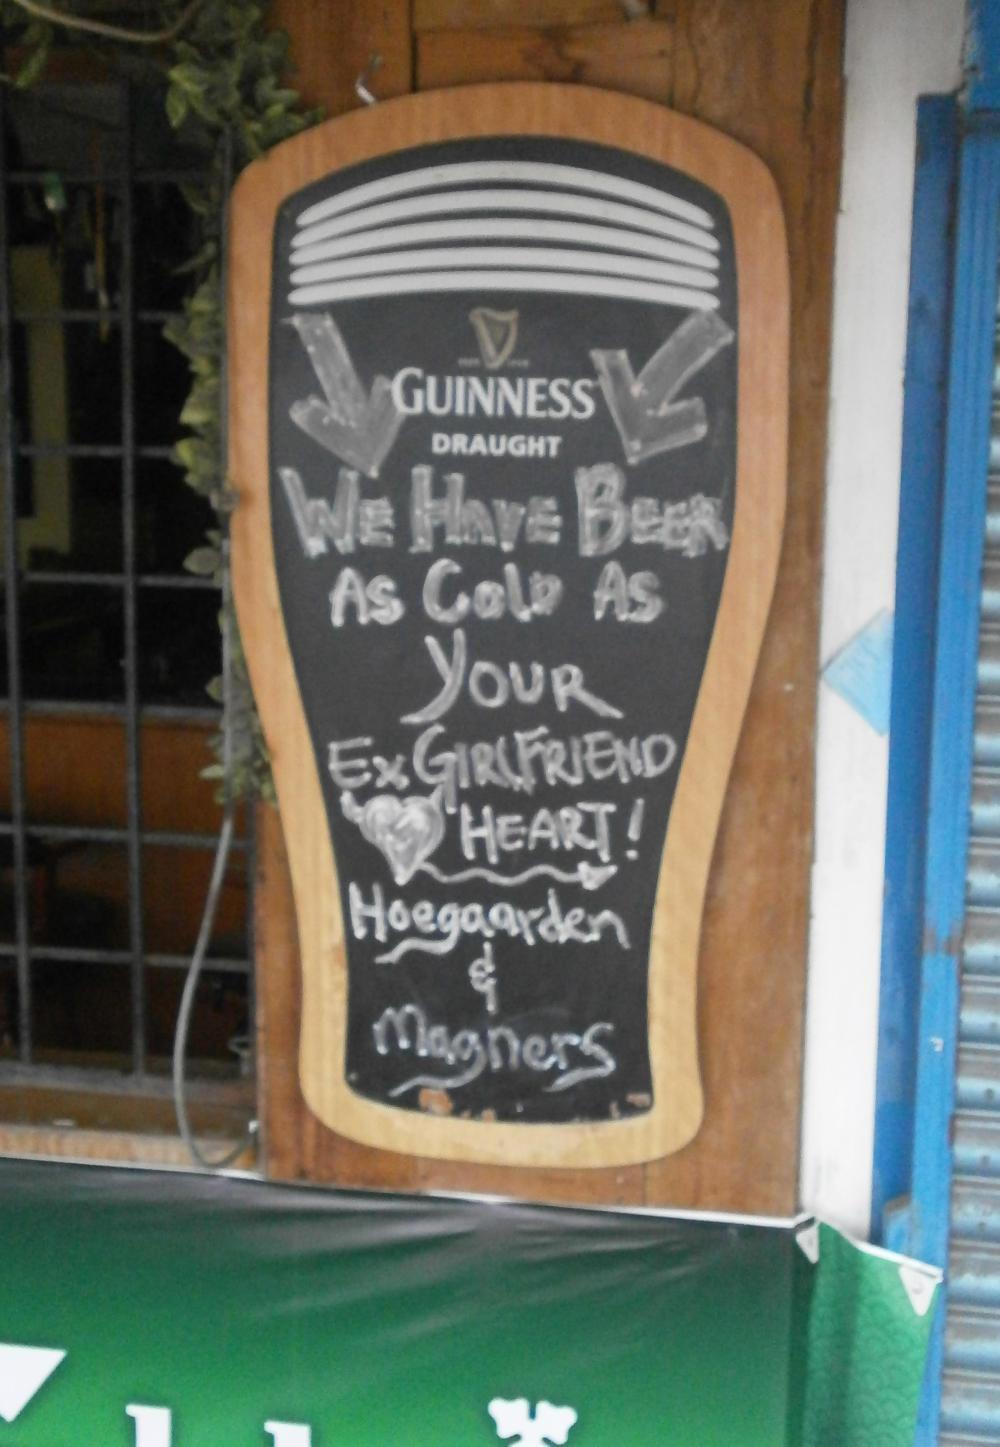 GUINNESS
DRAUGHT
WE HAVE BEER
AS COLD AS
YOUR
EX GIRLFRIEND
HEART!
Hoegaarden
&
Magners